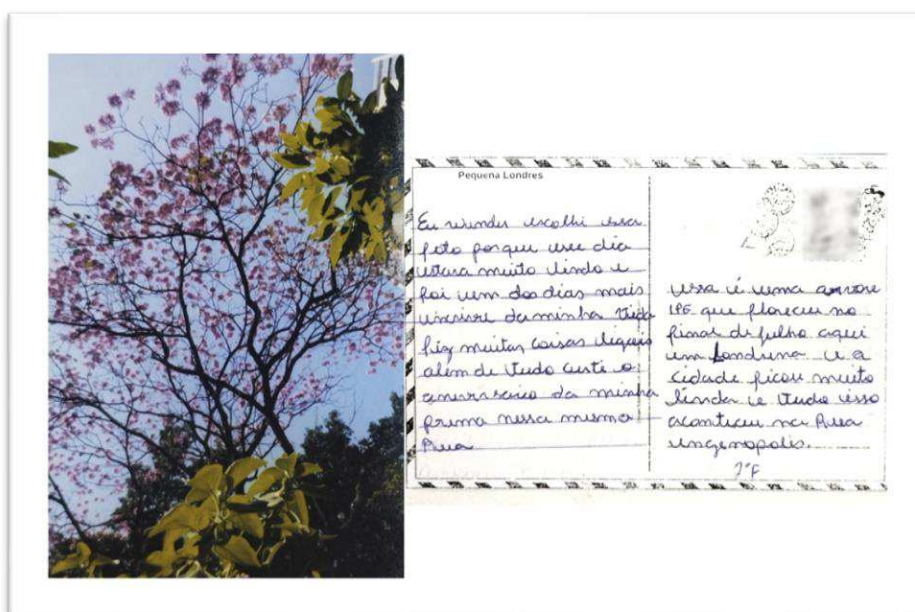 Pequena Londres
Eu escolhi essa
foto porque esse dia
estava muito lindo e
foi um dos dias mais
da minha vida
fiz muitas coisas legais
além de tudo curti o
da minha
prima nessa mesma
Rua
essa é uma arvore
IPE que floreceu no
final de julho aqui
em Londrina e a
cidade ficou muito
linda e tudo isso
aconteceu na Rua
engenopolis.
7°F